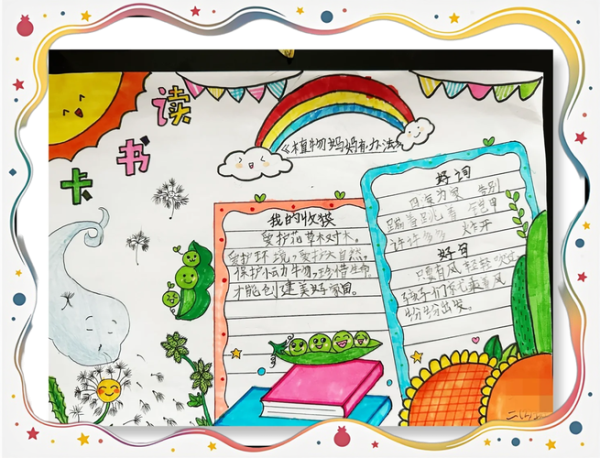 读
书
卡
《植物妈妈有办法》
我的收获
爱护花草树木。
爱护环境,爱护大自然,
保护小动物,珍惜生命,
才能创建美好家园。
好词
四海为家 告别
蹦着跳着 铠甲
许许多多 炸开
好句
只要有风轻轻吹过
孩子们就乘着风
纷纷出发。